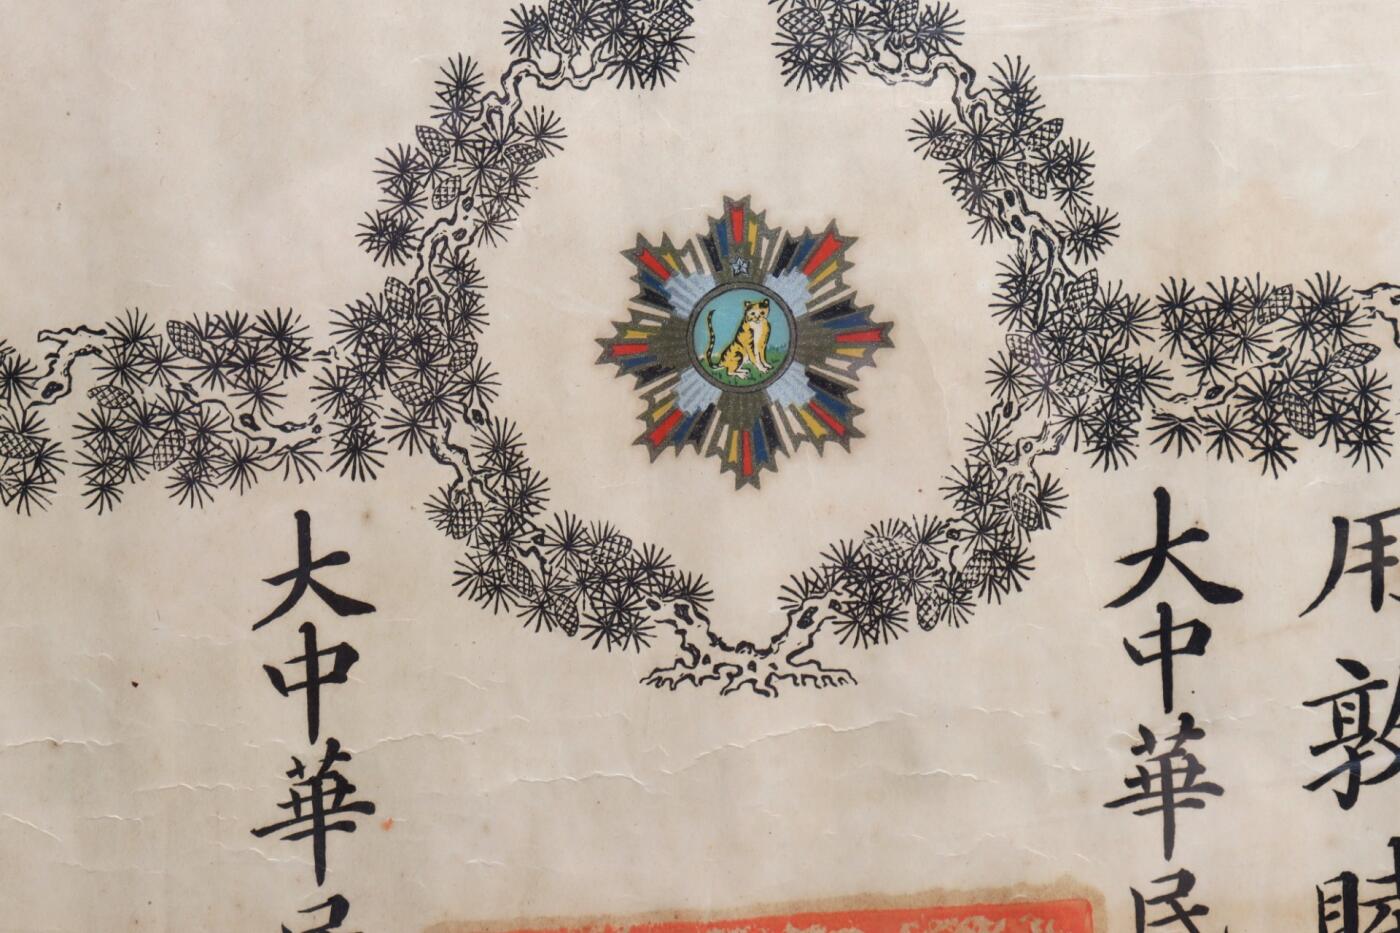 用敦睦
大中華民
大中華民